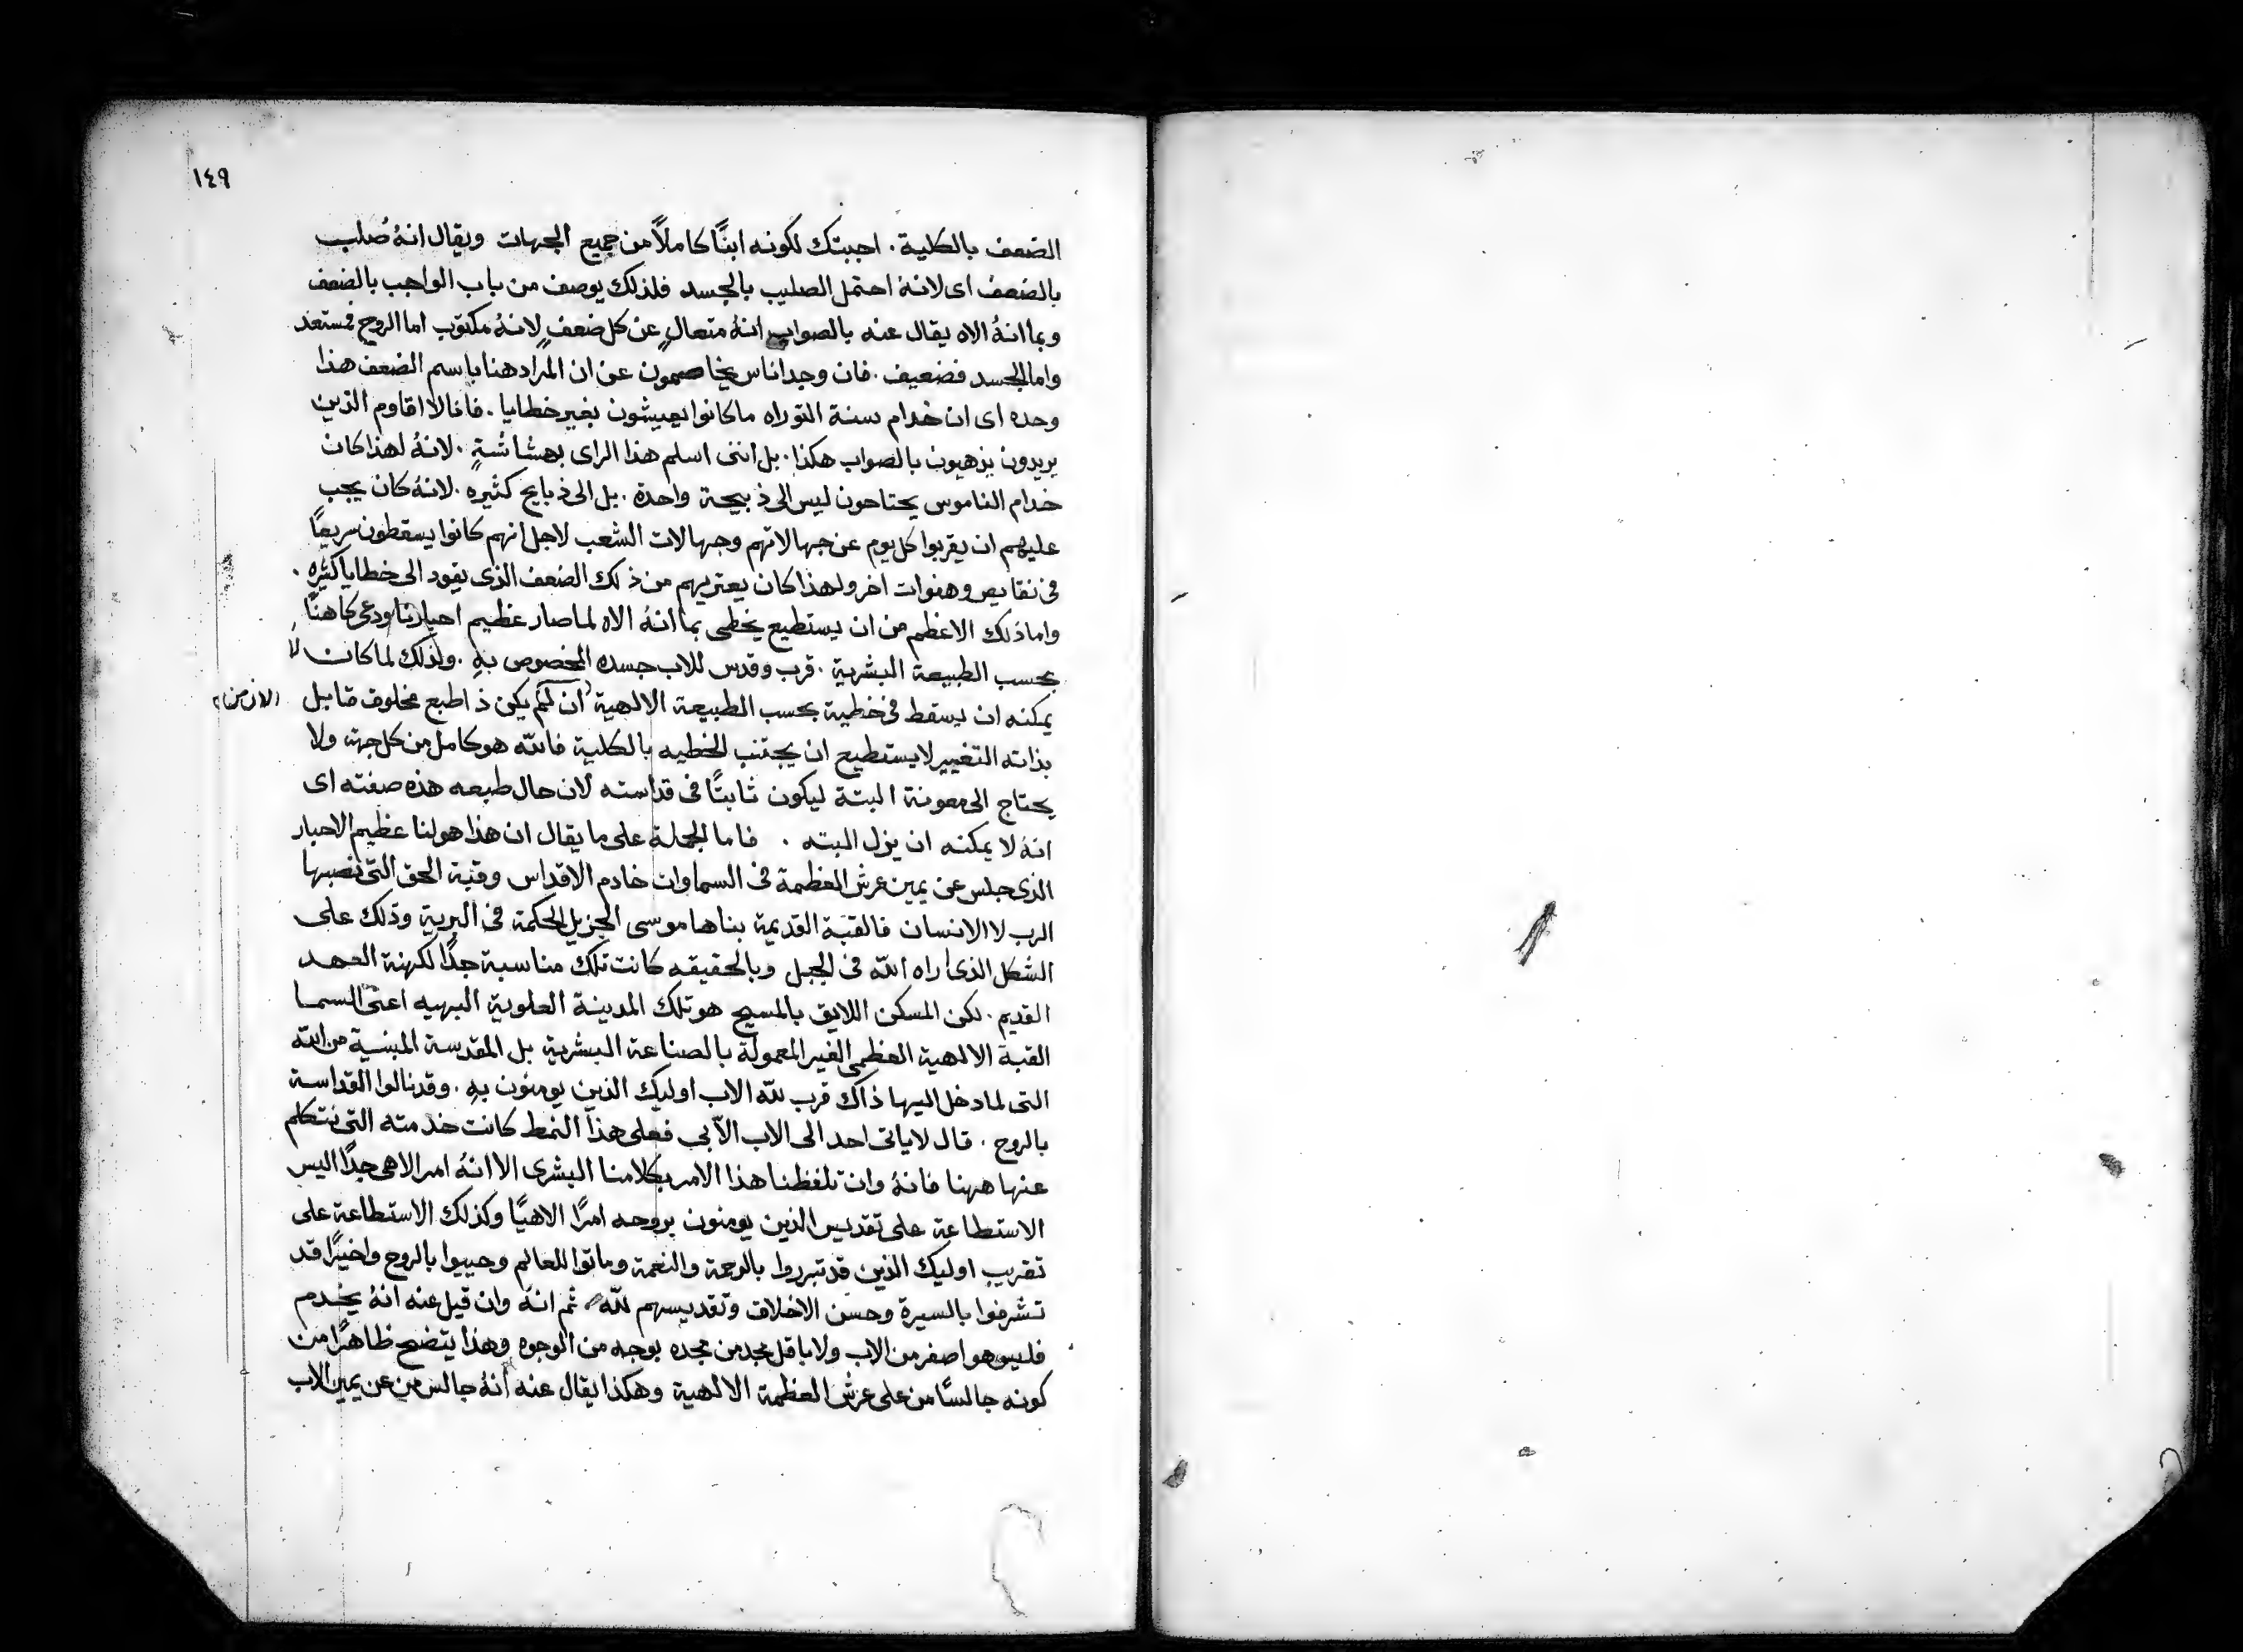 ١٤٩
الضعف بالكلية . اجبتك لكونه ابنًا كاملاً من جميع الجهات ويقال انهُ صُلب
بالضعف اى لانهُ احتمل الصليب بالجسد فلذلك يوصف من باب الواجب بالضعف
وبما انهُ الاه يقال عنه بالصواب انهُ متعالٍ عن كل ضعفٍ لانهُ مكتوب اما الروح فمستعد
واما الجسد فضعيف . فان وجد اناس يخاصمون عن ان المراد هنا باسم الضعف هذا
وحده اى ان خدام سنة التوراه ما كانوا يعيشون بغير خطايا . فانا لا اقاوم الذين
يريدون يزهيون بالصواب هكذا . بل اننى اسلم هذا الراى بهشاشةٍ . لانهُ لهذا كان
خدام الناموس يحتاحون ليس الى ذبيحة واحدة . بل الى ذبايح كثيره . لانهُ كان يجب
عليهم ان يقربوا كل يوم عن جهالاتهم وجهالات الشعب لاجل انهم كانوا يسقطون سريعًا
فى نقايص وهنوات اخر ولهذا كان يعتريهم من ذلك الضعف الذى يقود الى خطايا كثيره .
واما ذلك الاعظم من ان يستطيع يخطى بما انهُ الاه لما صار عظيم احبارنا ودعى كاهنًا
بحسب الطبيعة البشرية . قرب وقدس للاب جسده المخصوص بهِ . ولذلك لما كان لا
يمكنه ان يسقط فى خطية بحسب الطبيعة الالهية ان لم يكن ذا طبع مخلوف قابل
الان من
بذاته التغيير لا يستطيع ان يجتنب الخطيه بالكلية فالله هو كامل من كل جهة ولا
يحتاج الى معونة البتة ليكون ثابتًا فى قداسته لان حال طبعه هذه صفته اى
انهُ لا يمكنه ان يزل البته . فاما الجملة على ما يقال ان هذا هو لنا عظيم الاحبار
الذى جلس عن يمين عرش العظمة فى السماوات خادم الاقداس وقبة الحق التى نصبها
الرب لا الانسان فالقبَة القديمة بناها موسى الجزيل الحكمة فى البرية وذلك على
الشكل الذى اراه الله فى الجبل وبالحقيقه كانت تلك مناسبة جدًا لكهنة العهد
القديم . لكن المسكن اللايق بالمسيح هو تلك المدينة العلوية البهيه اعنى السما
القبة الالهية العظمى الغير المعمولة بالصناعة البشرية بل المقدسة المبنية من الله
التى لما دخل اليها ذاك قرب لله الاب اوليك الذين يومنون بهِ . وقد نالوا القداسة
بالروح . قال لا ياتى احد الى الاب الاّ بى فعلى هذا النمط كانت خدمته التى نتكلم
عنها ههنا فانهُ وان تلفظنا هذا الامر بكلامنا البشرى الا انهُ امر الاهى جدًا اليس
الاستطاعة على تقديس الذين يومنون بروحه امرًا الاهيًا وكذلك الاستطاعة على
تقريب اوليك الذين قد تبرروا بالرحمة والنعمة وماتوا للعالم وحييوا بالروح واخيرًا قد
تشرفوا بالسيرة وحسن الاخلاق وتقديسهم لله ثم انهَ وان قيل عنه انهُ يخدم
فليس هو اصغر من الاب ولا باقل مجد من مجده بوجه من الوجوه وهذا يتضح ظاهرًا من
كونه جالسًا من على عرش العظمة الالهية وهكذا يقال عنه انهُ جالس من عن يمين الاب